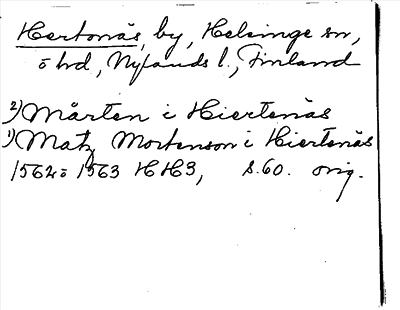 Hertonäs, by, Helsinge sn,
ö hd, Nylands l., Finland
2) Mårten i Hiertenäs
1) Matz Mortenson i Hiertenäs
1562 o 1563 HH3, s. 60. orig.